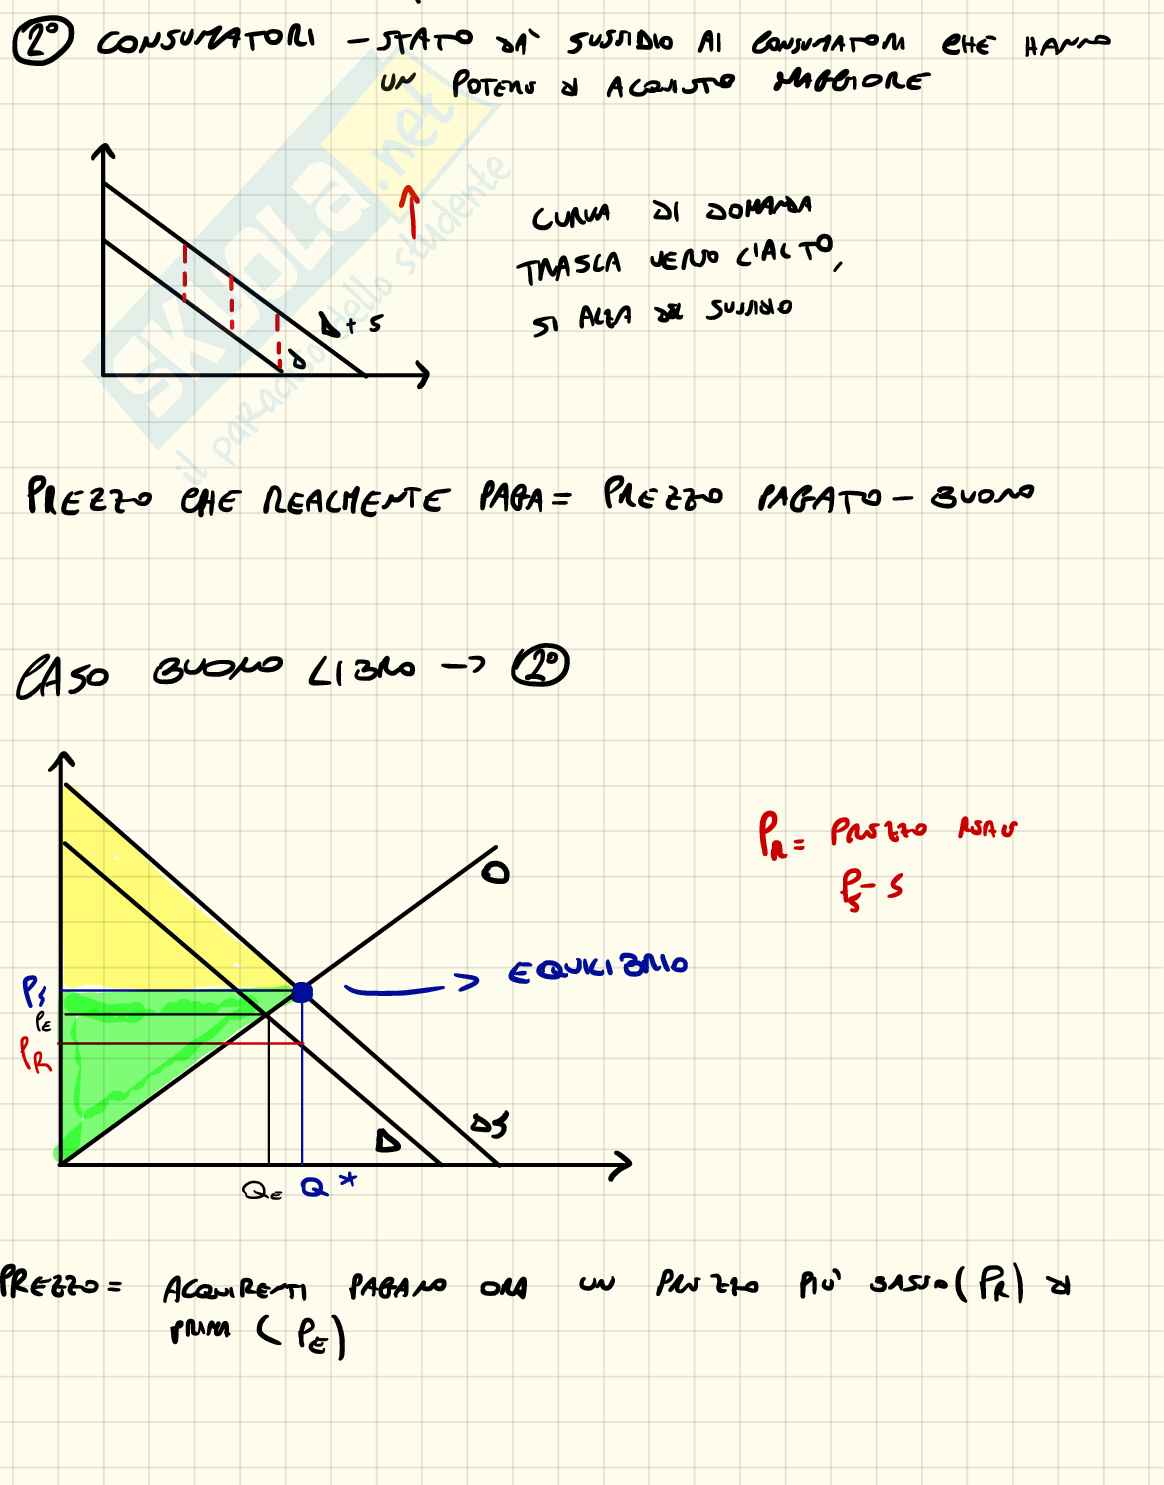 2° CONSUMATORI - STATO DA' SUSSIDIO AI CONSUMATORI CHE HANNO
UN POTERE DI ACQUISTO MAGGIORE
SKUOLA.net
il paradiso dello studente
CURVA DI DOMANDA
TRASLA VERSO L'ALTO,
SI ALZA DEL SUSSIDIO
D + S
D
PREZZO CHE REALMENTE PAGA = PREZZO PAGATO - BUONO
CASO BUONO LIBRO -> 2°
PR = PREZZO REALE
PS - S
O
EQUILIBRIO
PS
PE
PR
D
DS
QE Q*
PREZZO = ACQUIRENTI PAGANO ORA UN PREZZO PIU' BASSO (PR) DI
PRIMA (PE)